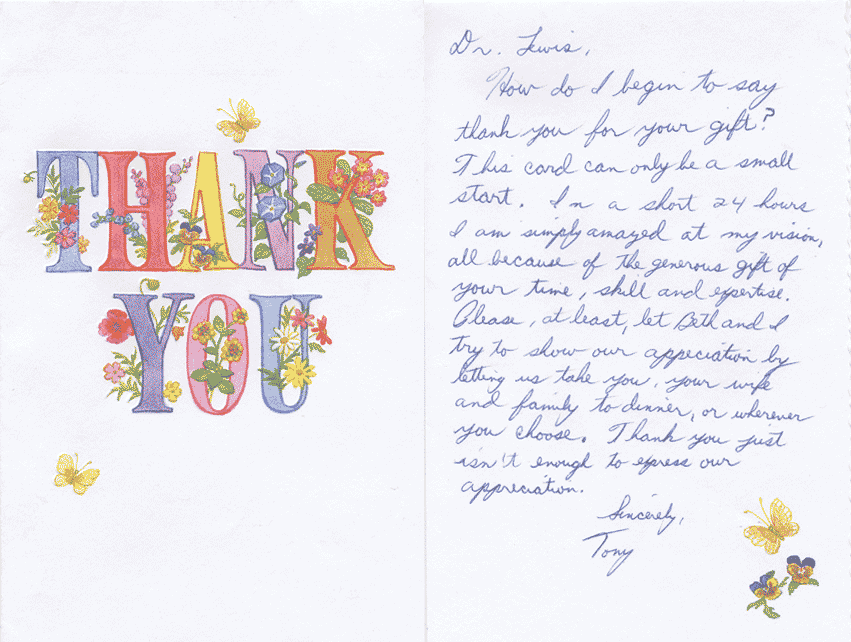 THANK
YOU
Dr. Lewis,
How do I begin to say
thank you for your gift?
This card can only be a small
start. In a short 24 hours
I am simply amazed at my vision,
all because of the generous gift of
your time, skill and expertise.
Please, at least, let Beth and I
try to show our appeciation by
letting us take you, your wife
and family to dinner, or wherever
you choose. Thank you just
isn't enough to express our
appreciation.
Sincerely,
Tony